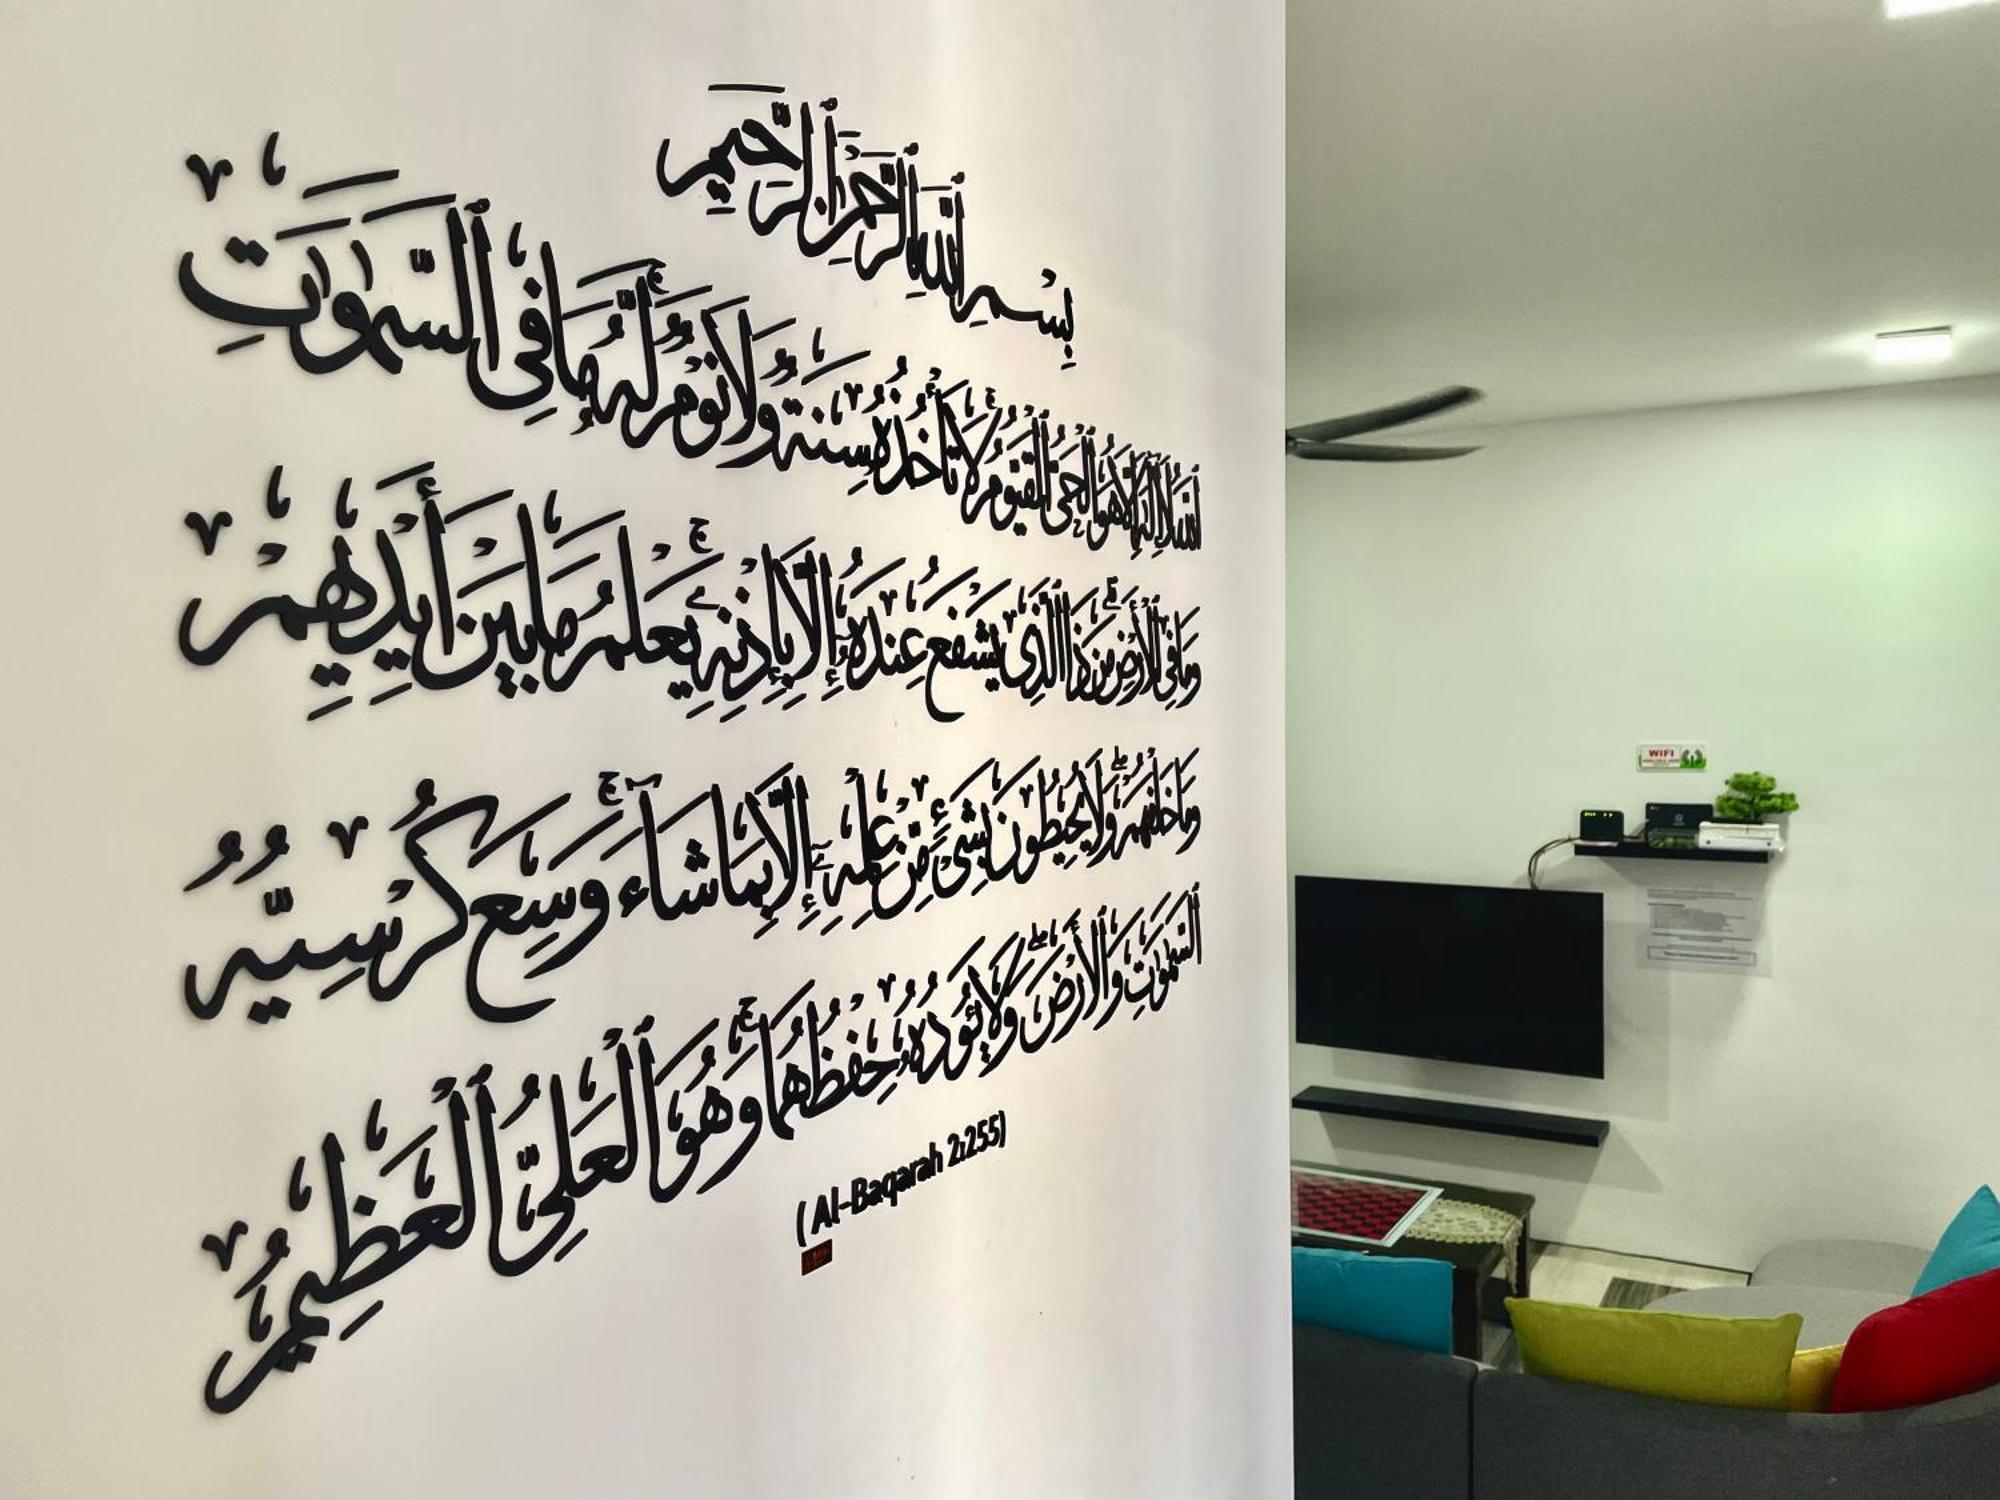 بِسْمِ ٱللَّهِ ٱلرَّحْمَٰنِ ٱلرَّحِيمِ
ٱللَّهُ لَآ إِلَٰهَ إِلَّا هُوَ ٱلْحَىُّ ٱلْقَيُّومُ ۚ لَا تَأْخُذُهُۥ سِنَةٌ وَلَا نَوْمٌ ۚ لَّهُۥ مَا فِى ٱلسَّمَٰوَٰتِ
وَمَا فِى ٱلْأَرْضِ ۗ مَن ذَا ٱلَّذِى يَشْفَعُ عِندَهُۥٓ إِلَّا بِإِذْنِهِۦ ۚ يَعْلَمُ مَا بَيْنَ أَيْدِيهِمْ
وَمَا خَلْفَهُمْ ۖ وَلَا يُحِيطُونَ بِشَىْءٍ مِّنْ عِلْمِهِۦٓ إِلَّا بِمَا شَآءَ ۚ وَسِعَ كُرْسِيُّهُ
ٱلسَّمَٰوَٰتِ وَٱلْأَرْضَ ۖ وَلَا يَـُٔودُهُۥ حِفْظُهُمَا ۚ وَهُوَ ٱلْعَلِىُّ ٱلْعَظِيمُ
( Al-Baqarah 2:255)
WIFI